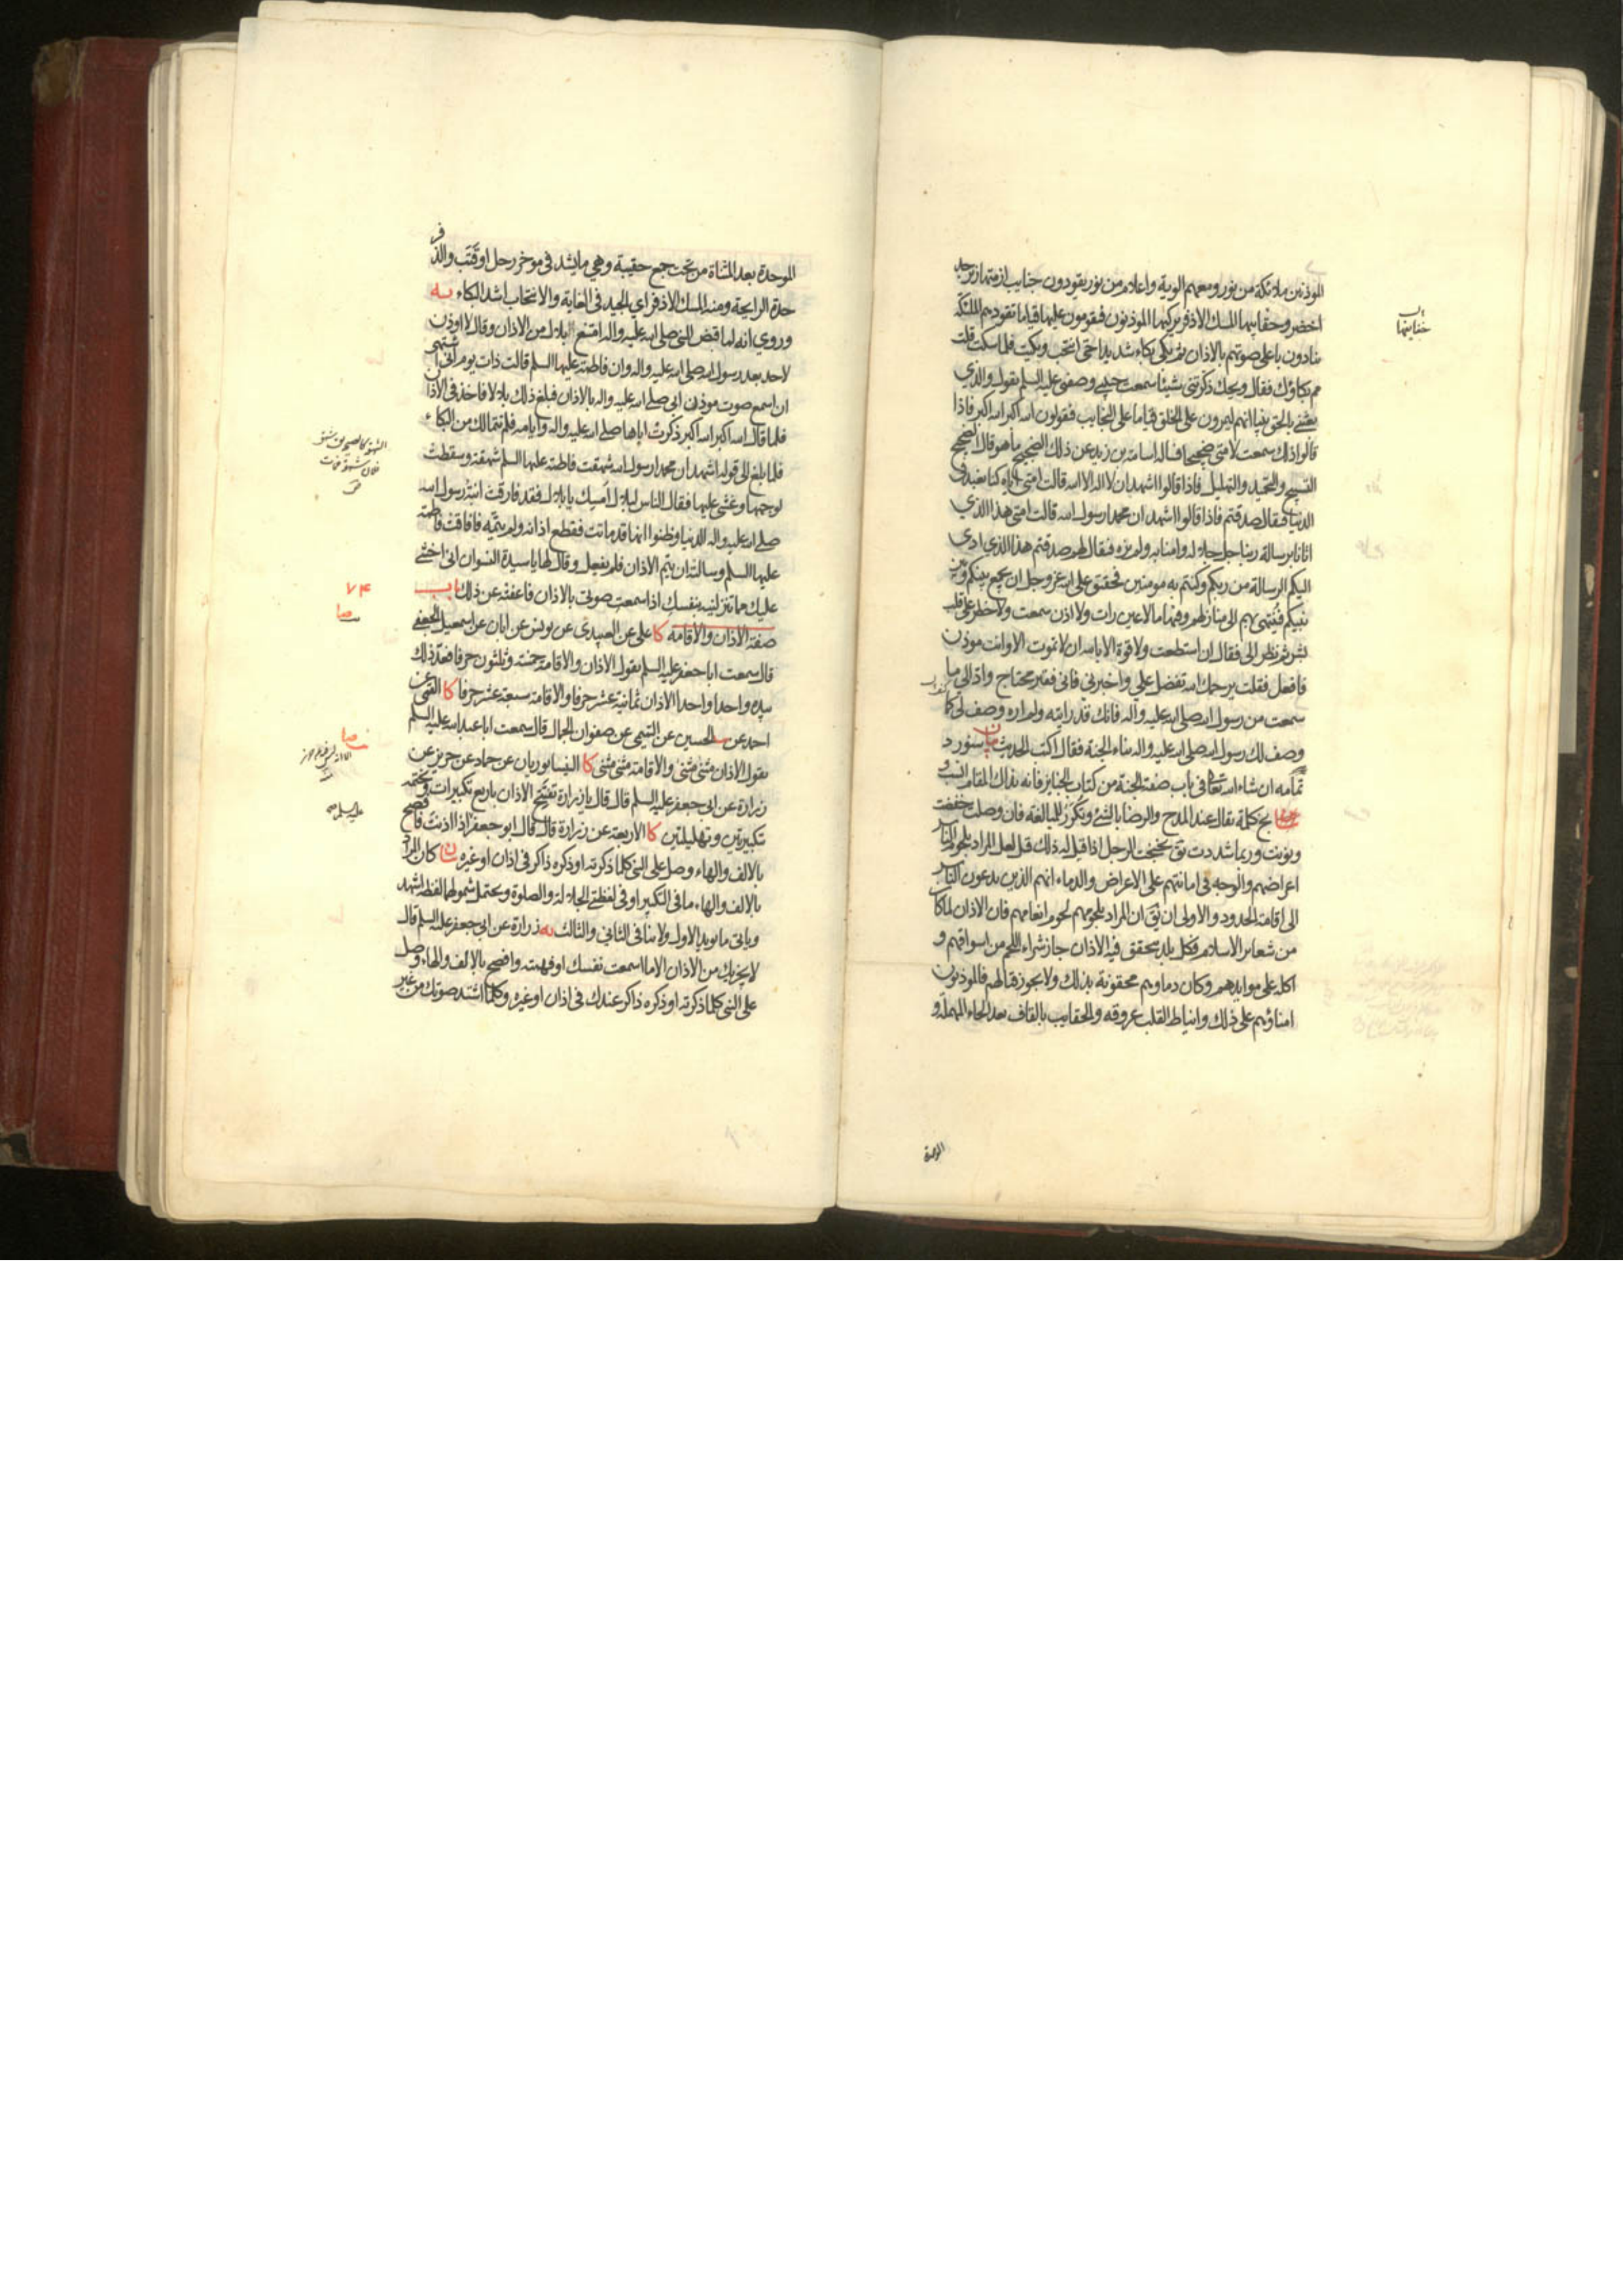 الموذنين ملائكة من نور ومعهم الوية واعلام من نور يقودون جنايب ازمتها زبرجد
اخضر وحقايبها المسك الاذفر يركبها الموذنون فيقومون عليها قياما تقودهم الملئكة
ينادون باعلى صوتهم بالاذان ثم بكى بكاء شديدا حتى انتحب وبكيت فلما سكت قلت
مم بكاؤك فقال ويحك ذكرتني شيئا سمعت حبيبي وصفيي عليه السلم يقول والذي
بعثني بالحق نبيا انهم ليمرون على الخلق قياما على النجايب فيقولون الله اكبر الله اكبر فاذا
قالوا ذلك سمعت لامتي ضجيجا فساله اسامة بن زيد عن ذلك الضجيج ما هو قال الضجيج
التسبيح والتحميد والتهليل فاذا قالوا اشهد ان لا اله الا الله قالت امتي اياه كنا نعبد في
الدنيا فيقال صدقتم فاذا قالوا اشهد ان محمدا رسول الله قالت امتي هذا الذي
اتانا برسالة ربنا جل جلاله وامنا به ولم نره فيقال لهم صدقتم هذا الذي ادى
اليكم الرسالة من ربكم وكنتم به مومنين فحقيق على الله عز وجل ان يجمع بينكم وبين
نبيكم فينتهي بهم الى منازلهم وفيها ما لا عين رات ولا اذن سمعت ولا خطر على قلب
بشر ثم نظر الي فقال ان استطعت ولا قوة الا بالله ان لا تموت الا وانت موذن
فافعل فقلت يرحمك الله تفضل علي واخبرني فاني فقير محتاج واد الي ما
سمعت من رسول الله صلى الله عليه وآله فانك قد رايته ولم اره وصف لي كما
وصف لك رسول الله صلى الله عليه واله بناء الجنة فقال اكتب الحديث بيان سنورد
تمامه ان شاء الله تعالى في باب صفة الجنة من كتاب الجنايز فانه بذاك المقام انسب و
بخ كلمة يقال عند المدح والرضا بالشئ وتكرر للمبالغة فان وصلت خففت
ونونت وربما شددت يق بخبخت الرجل اذا قيل له ذلك قيل لعل المراد بلحوم الناس
اعراضهم والوجه في امانتهم على الاعراض والدماء انهم الذين يدعون الناس
الى اقامة الحدود والاولى ان يق ان المراد بلحومهم لحوم انعامهم فان الاذان لما كان
من شعاير الاسلام فكل بلد يتحقق فيه الاذان جاز شراء اللحم من اسواقهم و
اكله على موايدهم وكان دماوهم محقونة بذلك ولا يجوز قتالهم فالموذنون
امناؤهم على ذلك وانياط القلب عروقه والحقايب بالقاف بعد الحاء المهملة و
الموحدة
الموحدة بعد المثناة من تحت جمع حقيبة وهي ما يشد في موخر رحل او قتب والذفر
حدة الرايحة ومنه المسك الاذفر اي الجيد في الغاية والانتحاب اشد البكاء يه
وروي انه لما قبض النبي صلى الله عليه واله امتنع بلال من الاذان وقال لا اوذن
لاحد بعد رسول الله صلى الله عليه واله وان فاطمة عليها السلم قالت ذات يوم اني اشتهي
ان اسمع صوت موذن ابي صلى الله عليه واله بالاذان فبلغ ذلك بلالا فاخذ في الاذان
فلما قال الله اكبر الله اكبر ذكرت اباها صلى الله عليه واله وايامه فلم تتمالك من البكاء
فلما بلغ الى قوله اشهد ان محمدا رسول الله شهقت فاطمة عليها السلم شهقة وسقطت
لوجهها وغشي عليها فقال الناس لبلال امسك يا بلال فقد فارقت ابنة رسول الله
صلى الله عليه واله الدنيا وظنوا انها قد ماتت فقطع اذانه ولم يتمه فافاقت فاطمة
عليها السلم وسالته ان يتم الاذان فلم يفعل وقال لها يا سيدة النسوان اني اخشى
عليك مما تنزلينه بنفسك اذا سمعت صوتي بالاذان فاعفته عن ذلك باب
٧٤
صفة الاذان والاقامة كا علي عن العبيدي عن يونس عن ابان عن اسمعيل الجعفي
قال سمعت ابا جعفر عليه السلم يقول الاذان والاقامة خمسة وثلثون حرفا فعد ذلك
بيده واحدا واحدا الاذان ثمانية عشر حرفا والاقامة سبعة عشر حرفا كا القمي عن
احمد عن الحسين عن التميمي عن صفوان الجمال قال سمعت ابا عبد الله عليه السلم
يقول الاذان مثنى مثنى والاقامة مثنى مثنى كا النيسابوريان عن حماد عن حريز عن
زرارة عن ابي جعفر عليه السلم قال قال يا زرارة تفتتح الاذان باربع تكبيرات وتختمه
تكبيرتين وتهليلتين كا الاربعة عن زرارة قال قال ابو جعفر اذا اذنت فافصح
عليه السلم
بالالف والهاء وصل على النبي كلما ذكرته او ذكره ذاكر في اذان او غيره بيان كان المراد
بالالف والهاء ما في التكبير او في لفظتي الجلالة والصلوة ويحتمل شمولها لفظ اشهد
وياتي ما يويد الاول ولا ينافي الثاني والثالث يه زرارة عن ابي جعفر عليه السلم قال
لا يجزيك من الاذان الا ما اسمعت نفسك او فهمته وافصح بالالف والهاء وصل
على النبي كلما ذكرته او ذكره ذاكر عندك في اذان او غيره وكلما اشتد صوتك من غير